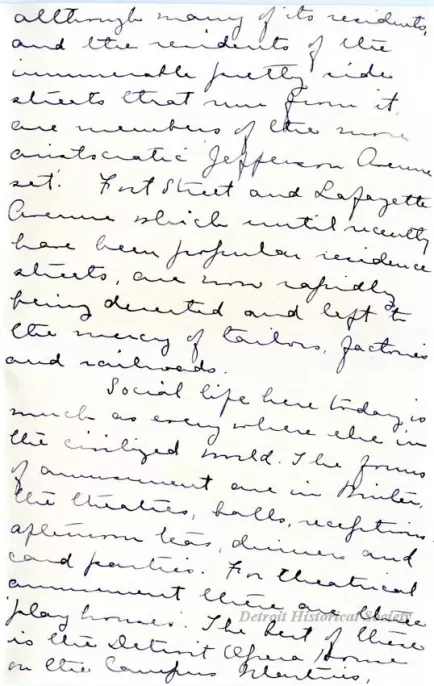 although many of its residents,
and the residents of the
innumerable pretty side
streets that run from it,
are members of the more
aristocratic 'Jefferson Avenue
set.' Fort Street and Lafayette
Avenue which until recently
have been popular residence
streets, are now rapidly
being deserted and left to
the mercy of tailors, factories
and railroads.
Social life here today is
much as every where else in
the civilized world. The forms
of amusement are in Winter,
the theatres, balls, receptions
afternoon teas, dinners and
card parties. For theatrical
amusement there are three
play houses. The best of these
Detroit Historical Society
is the Detroit Opera House
on the Campus Martius,